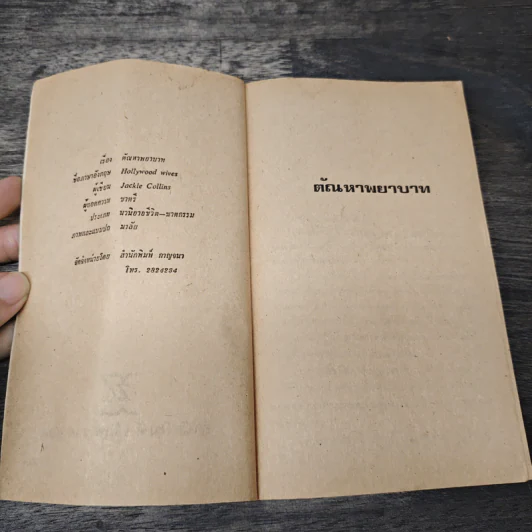 เรื่อง ตัณหาพยาบาท
ชื่อภาษาอังกฤษ Hollywood wives
ผู้เขียน Jackie Collins
ผู้ถอดความ ชาตรี
ประเภท นวนิยายชีวิต—ฆาตกรรม
ภาพและแบบปก มาลัย
จัดจำหน่ายโดย สำนักพิมพ์ กาญจนา
โทร. 2824234
ตัณหาพยาบาท